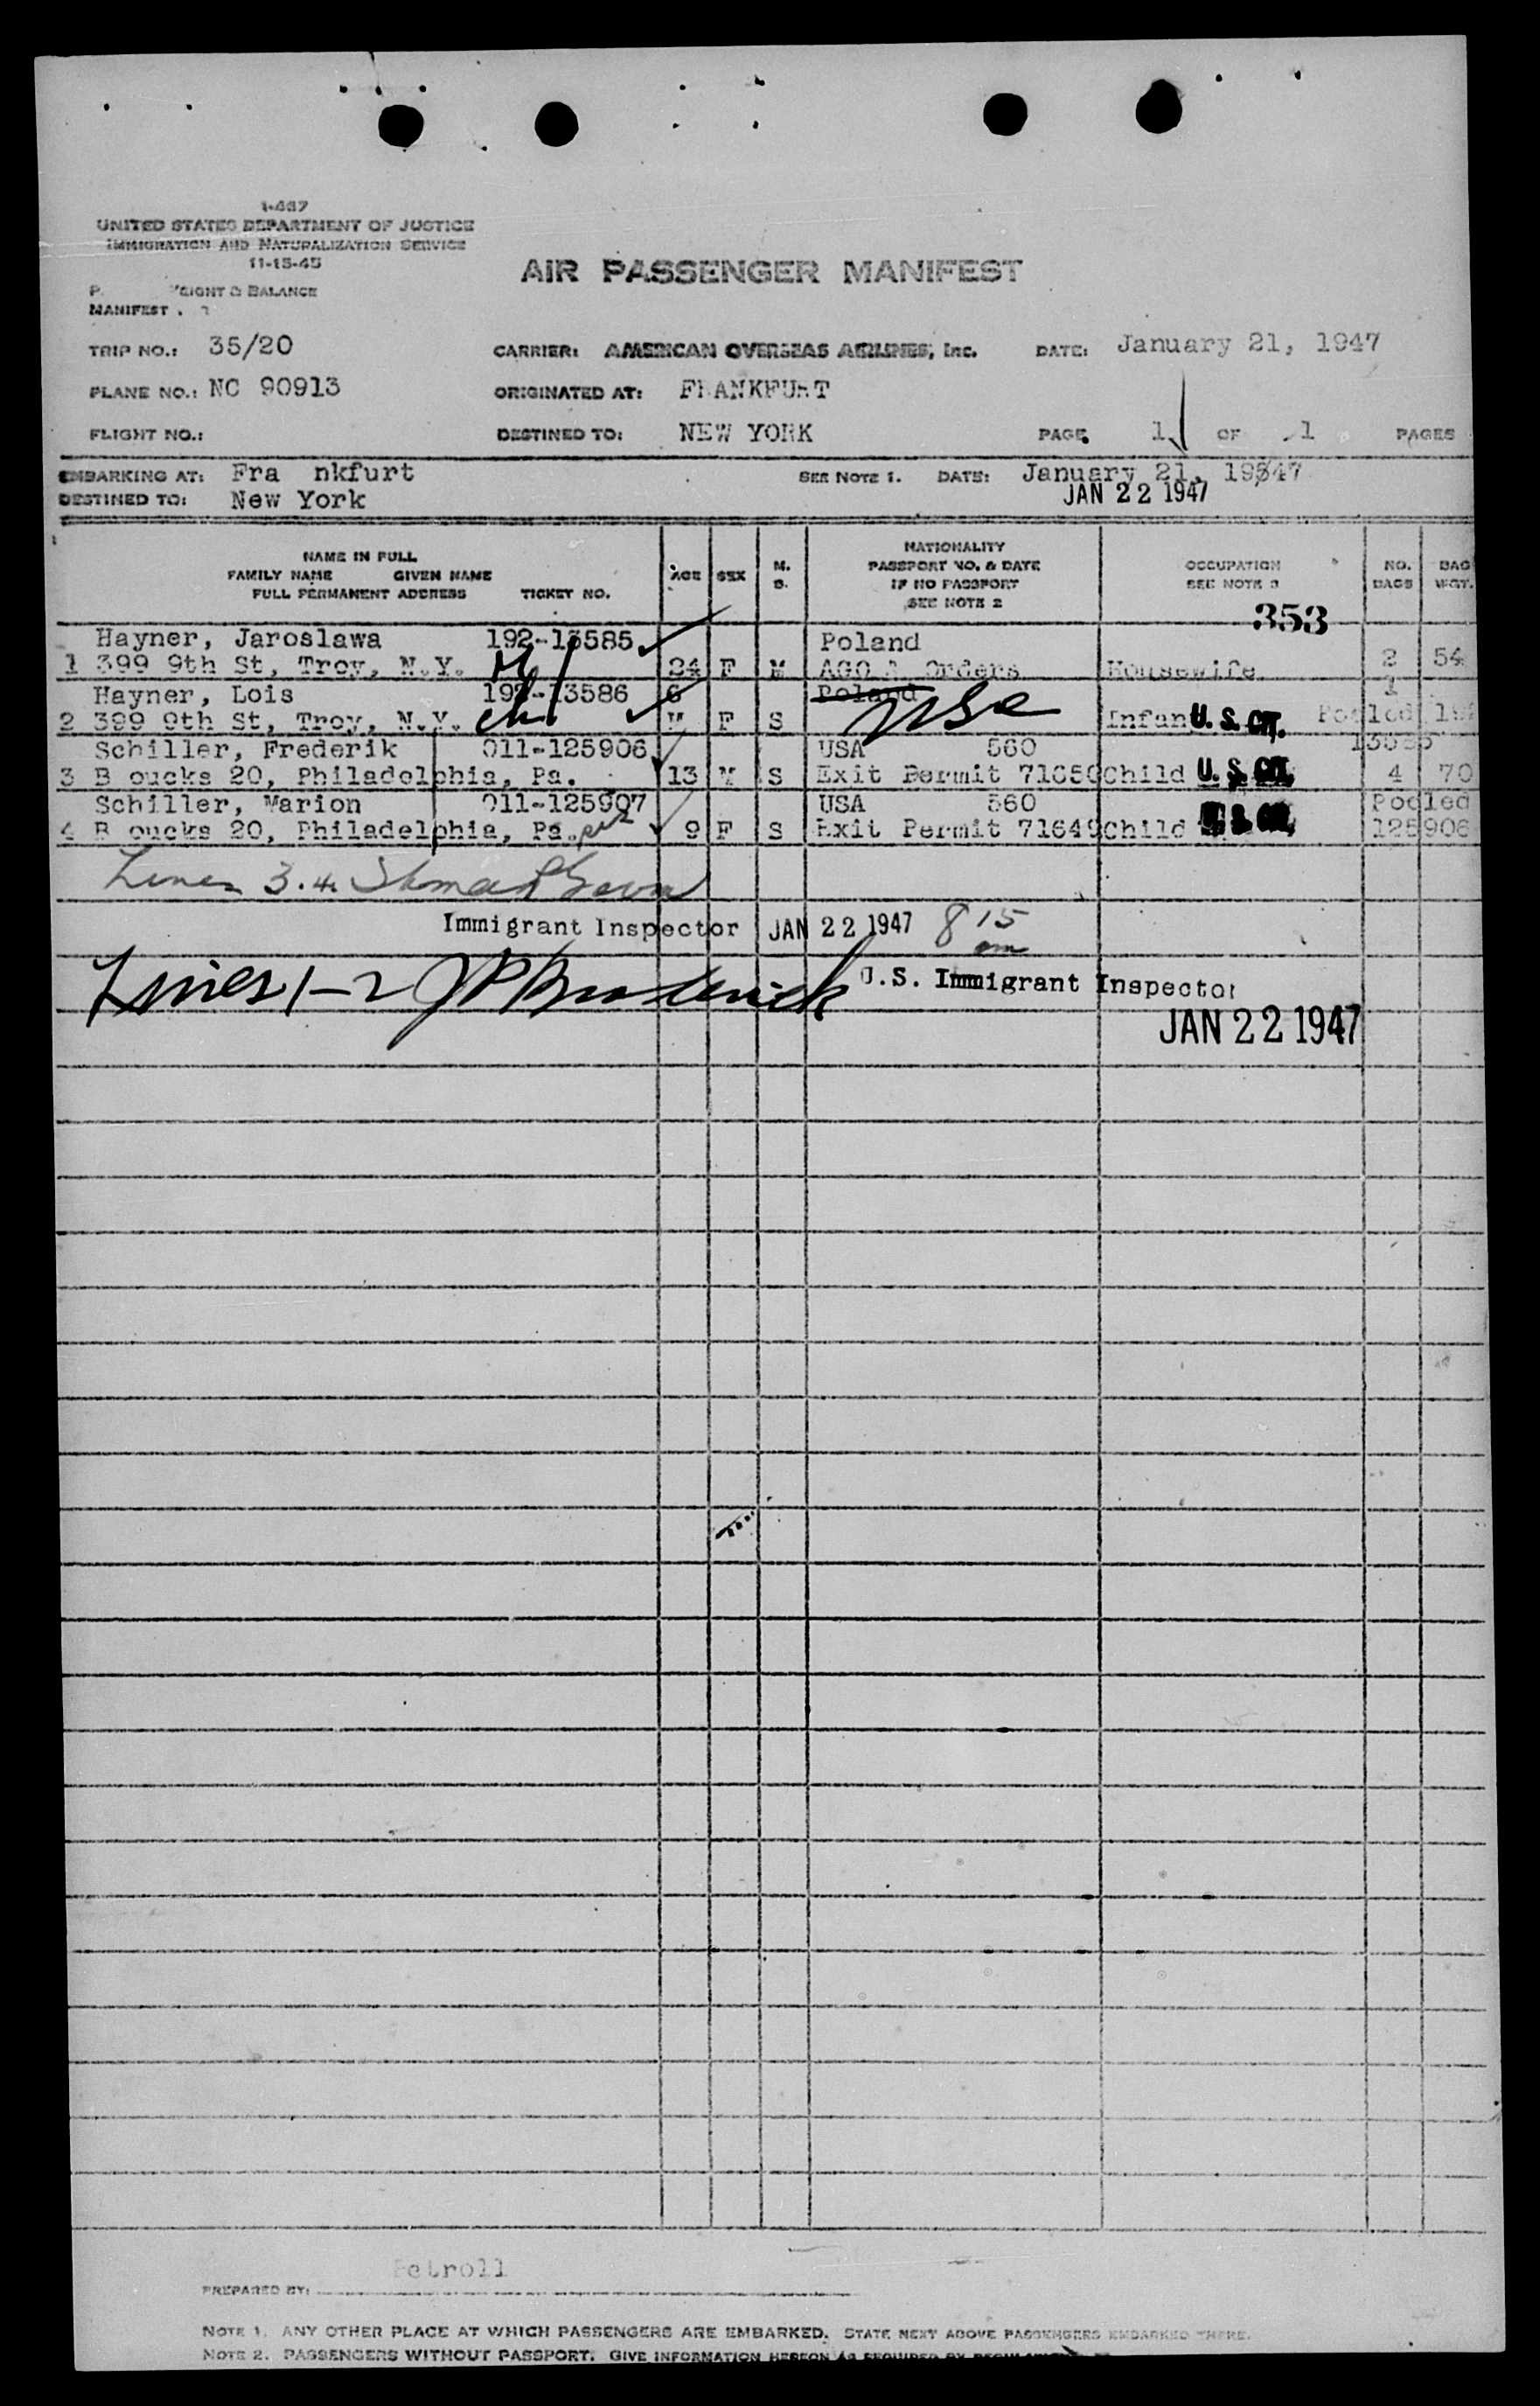 I-467
UNITED STATES DEPARTMENT OF JUSTICE
IMMIGRATION AND NATURALIZATION SERVICE
11-15-45
AIR PASSENGER MANIFEST
P. WEIGHT & BALANCE
MANIFEST
TRIP NO.: 35/20 CARRIER: AMERICAN OVERSEAS AIRLINES, Inc. DATE: January 21, 1947
PLANE NO.: NC 90913 ORIGINATED AT: FRANKFURT
FLIGHT NO.: DESTINED TO: NEW YORK PAGE 1 OF 1 PAGES
EMBARKING AT: Fra nkfurt SEE NOTE 1. DATE: January 21, 19347
DESTINED TO: New York JAN 22 1947
NAME IN FULL
FAMILY NAME GIVEN NAME
FULL PERMANENT ADDRESS TICKET NO. AGE SEX M. S. NATIONALITY PASSPORT NO. & DATE IF NO PASSPORT SEE NOTE 2 OCCUPATION SEE NOTE 3 NO. BAGS BAG WGT.
353
Hayner, Jaroslawa 192-13585 Poland
1 399 9th St, Troy, N.Y. 24 F M AGO Orders Housewife 2 54
Hayner, Lois 192-13586 6 Poland 1
2 399 9th St, Troy, N.Y. M F S USC Infan U. S. CIT. Pooled 192
Schiller, Frederik 011-125906 USA 560 13585
3 B oucks 20, Philadelphia, Pa. 13 M S Exit Permit 71650 Child U. S. CIT. 4 70
Schiller, Marion 011-125907 USA 560 Pooled
4 B oucks 20, Philadelphia, Pa. 9 F S Exit Permit 71649 Child U. S. CIT. 125906
Lines 3.4.
Immigrant Inspector JAN 22 1947 8 15 am
Lines 1-2 JP Broderick U.S. Immigrant Inspector
JAN 22 1947
Petroll
PREPARED BY:
NOTE 1. ANY OTHER PLACE AT WHICH PASSENGERS ARE EMBARKED. STATE NEXT ABOVE PASSENGERS EMBARKED THERE.
NOTE 2. PASSENGERS WITHOUT PASSPORT. GIVE INFORMATION HEREON AS REQUIRED BY